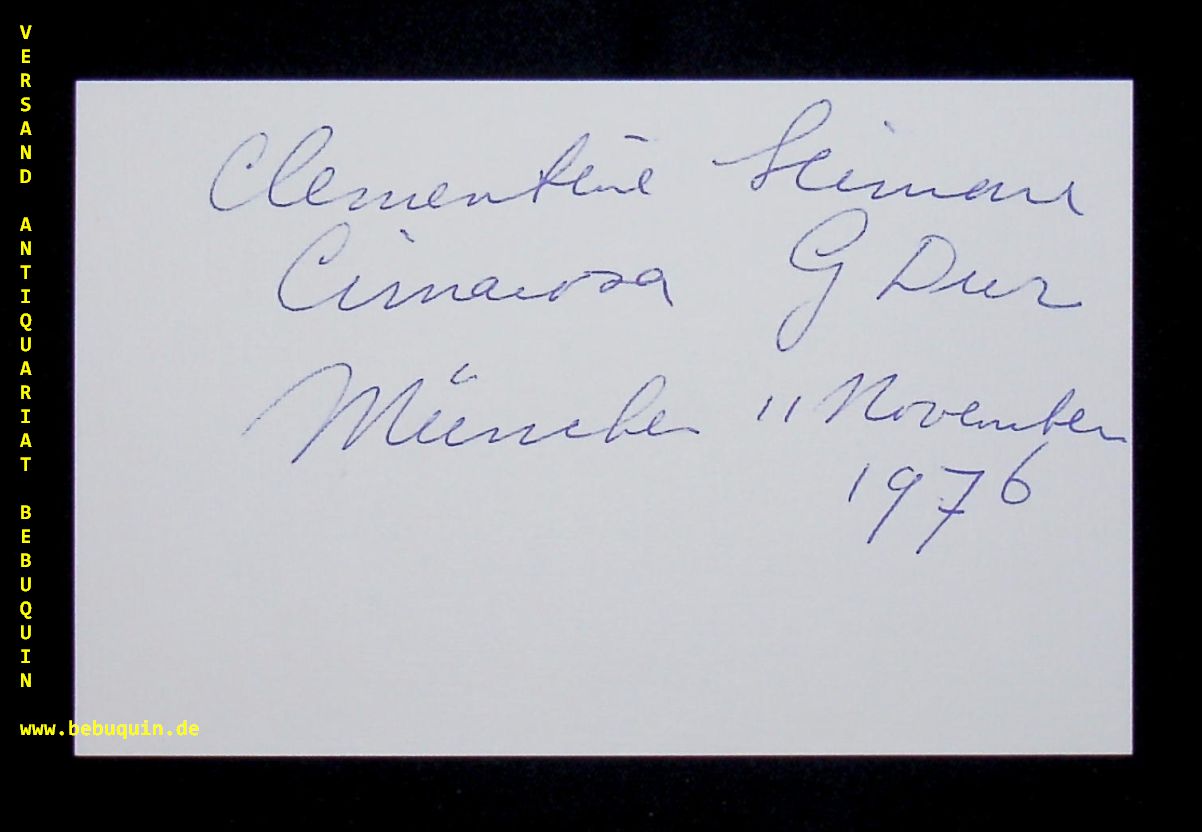 VERSAND ANTIQUARIAT BEBUQUIN
www.bebuquin.de
Clementine Scimone
Cimarosa G Dur
München 11 November
1976